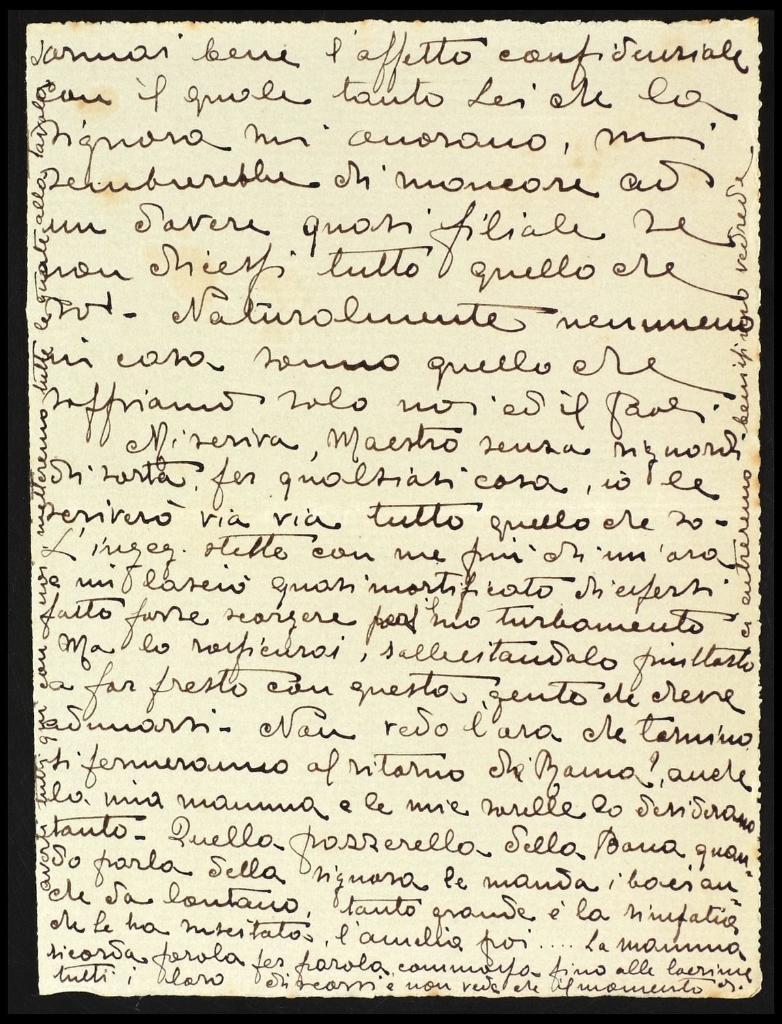 ormai bene l'affetto confidenziale
con il quale tanto Lei che la
signora mi onorano, mi
sembrerebbe di mancare ad
un dovere quasi filiale se
non dicessi tutto quello che
so. Naturalmente nemmeno
in casa sanno quello che
soffriamo solo noi ed il
Mi scriva, Maestro senza riguardi
di sorta, per qualsiasi cosa, io le
scriverò via via tutto quello che so -
L'ingeg. stette con me più di un'ora
e mi lasciò quasi mortificato di essersi
fatto forse scorgere suo turbamento
Ma lo rassicurai, sollecitandolo piuttosto
a far presto con questa gente che deve
adunarsi - Non vedo l'ora che tornino
si fermeranno al ritorno di Roma?, anche
la mia mamma e le mie sorelle lo desiderano
tanto - Quella pazzerella della quan-
do parla della signora le manda i baci an-
che da lontano, tanto grande è la simpatia
che le ha suscitato, l'amelia poi .... La mamma
ricorda parola per parola, commossa fino alle lacrime
tutti i loro discorsi e non vede che il momento di
avere tutti qui con noi metteremo tutte le quate alla tavola
ci entreremo benissimo vedrà